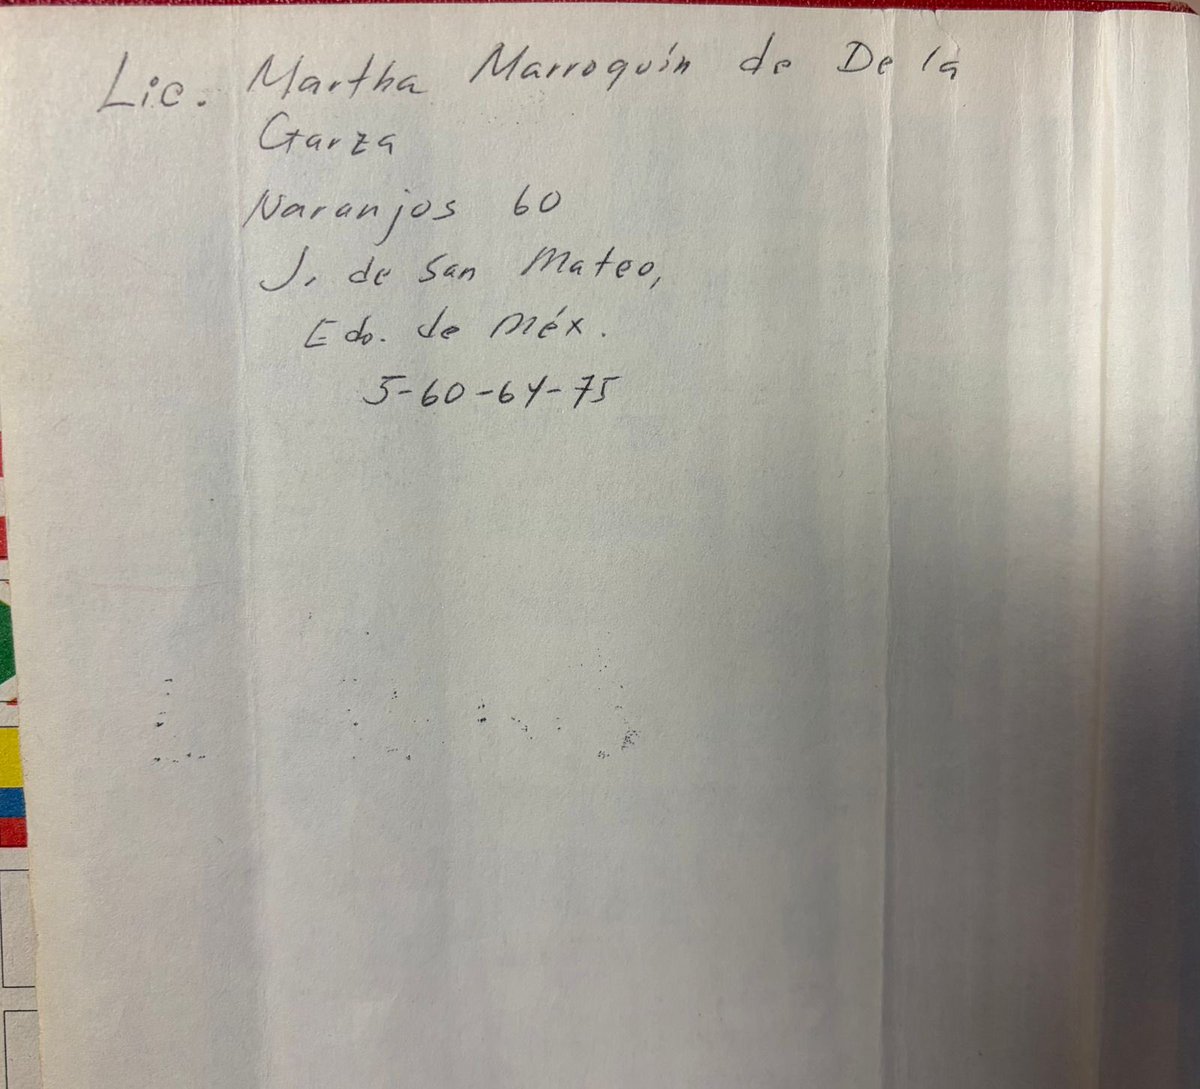 Lic. Martha Marroquín de De la
Garza
Naranjos 60
J. de San Mateo,
Edo. de Méx.
5-60-64-75